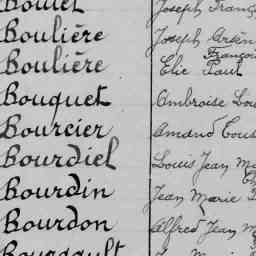 Boulet Joseph
Boulière Joseph
Boulière Elie Paul
Bouquet Ambroise
Bourcier Amand
Bourdiel Louis Jean
Bourdin Jean Marie
Bourdon Alfred Jean
Bourgault